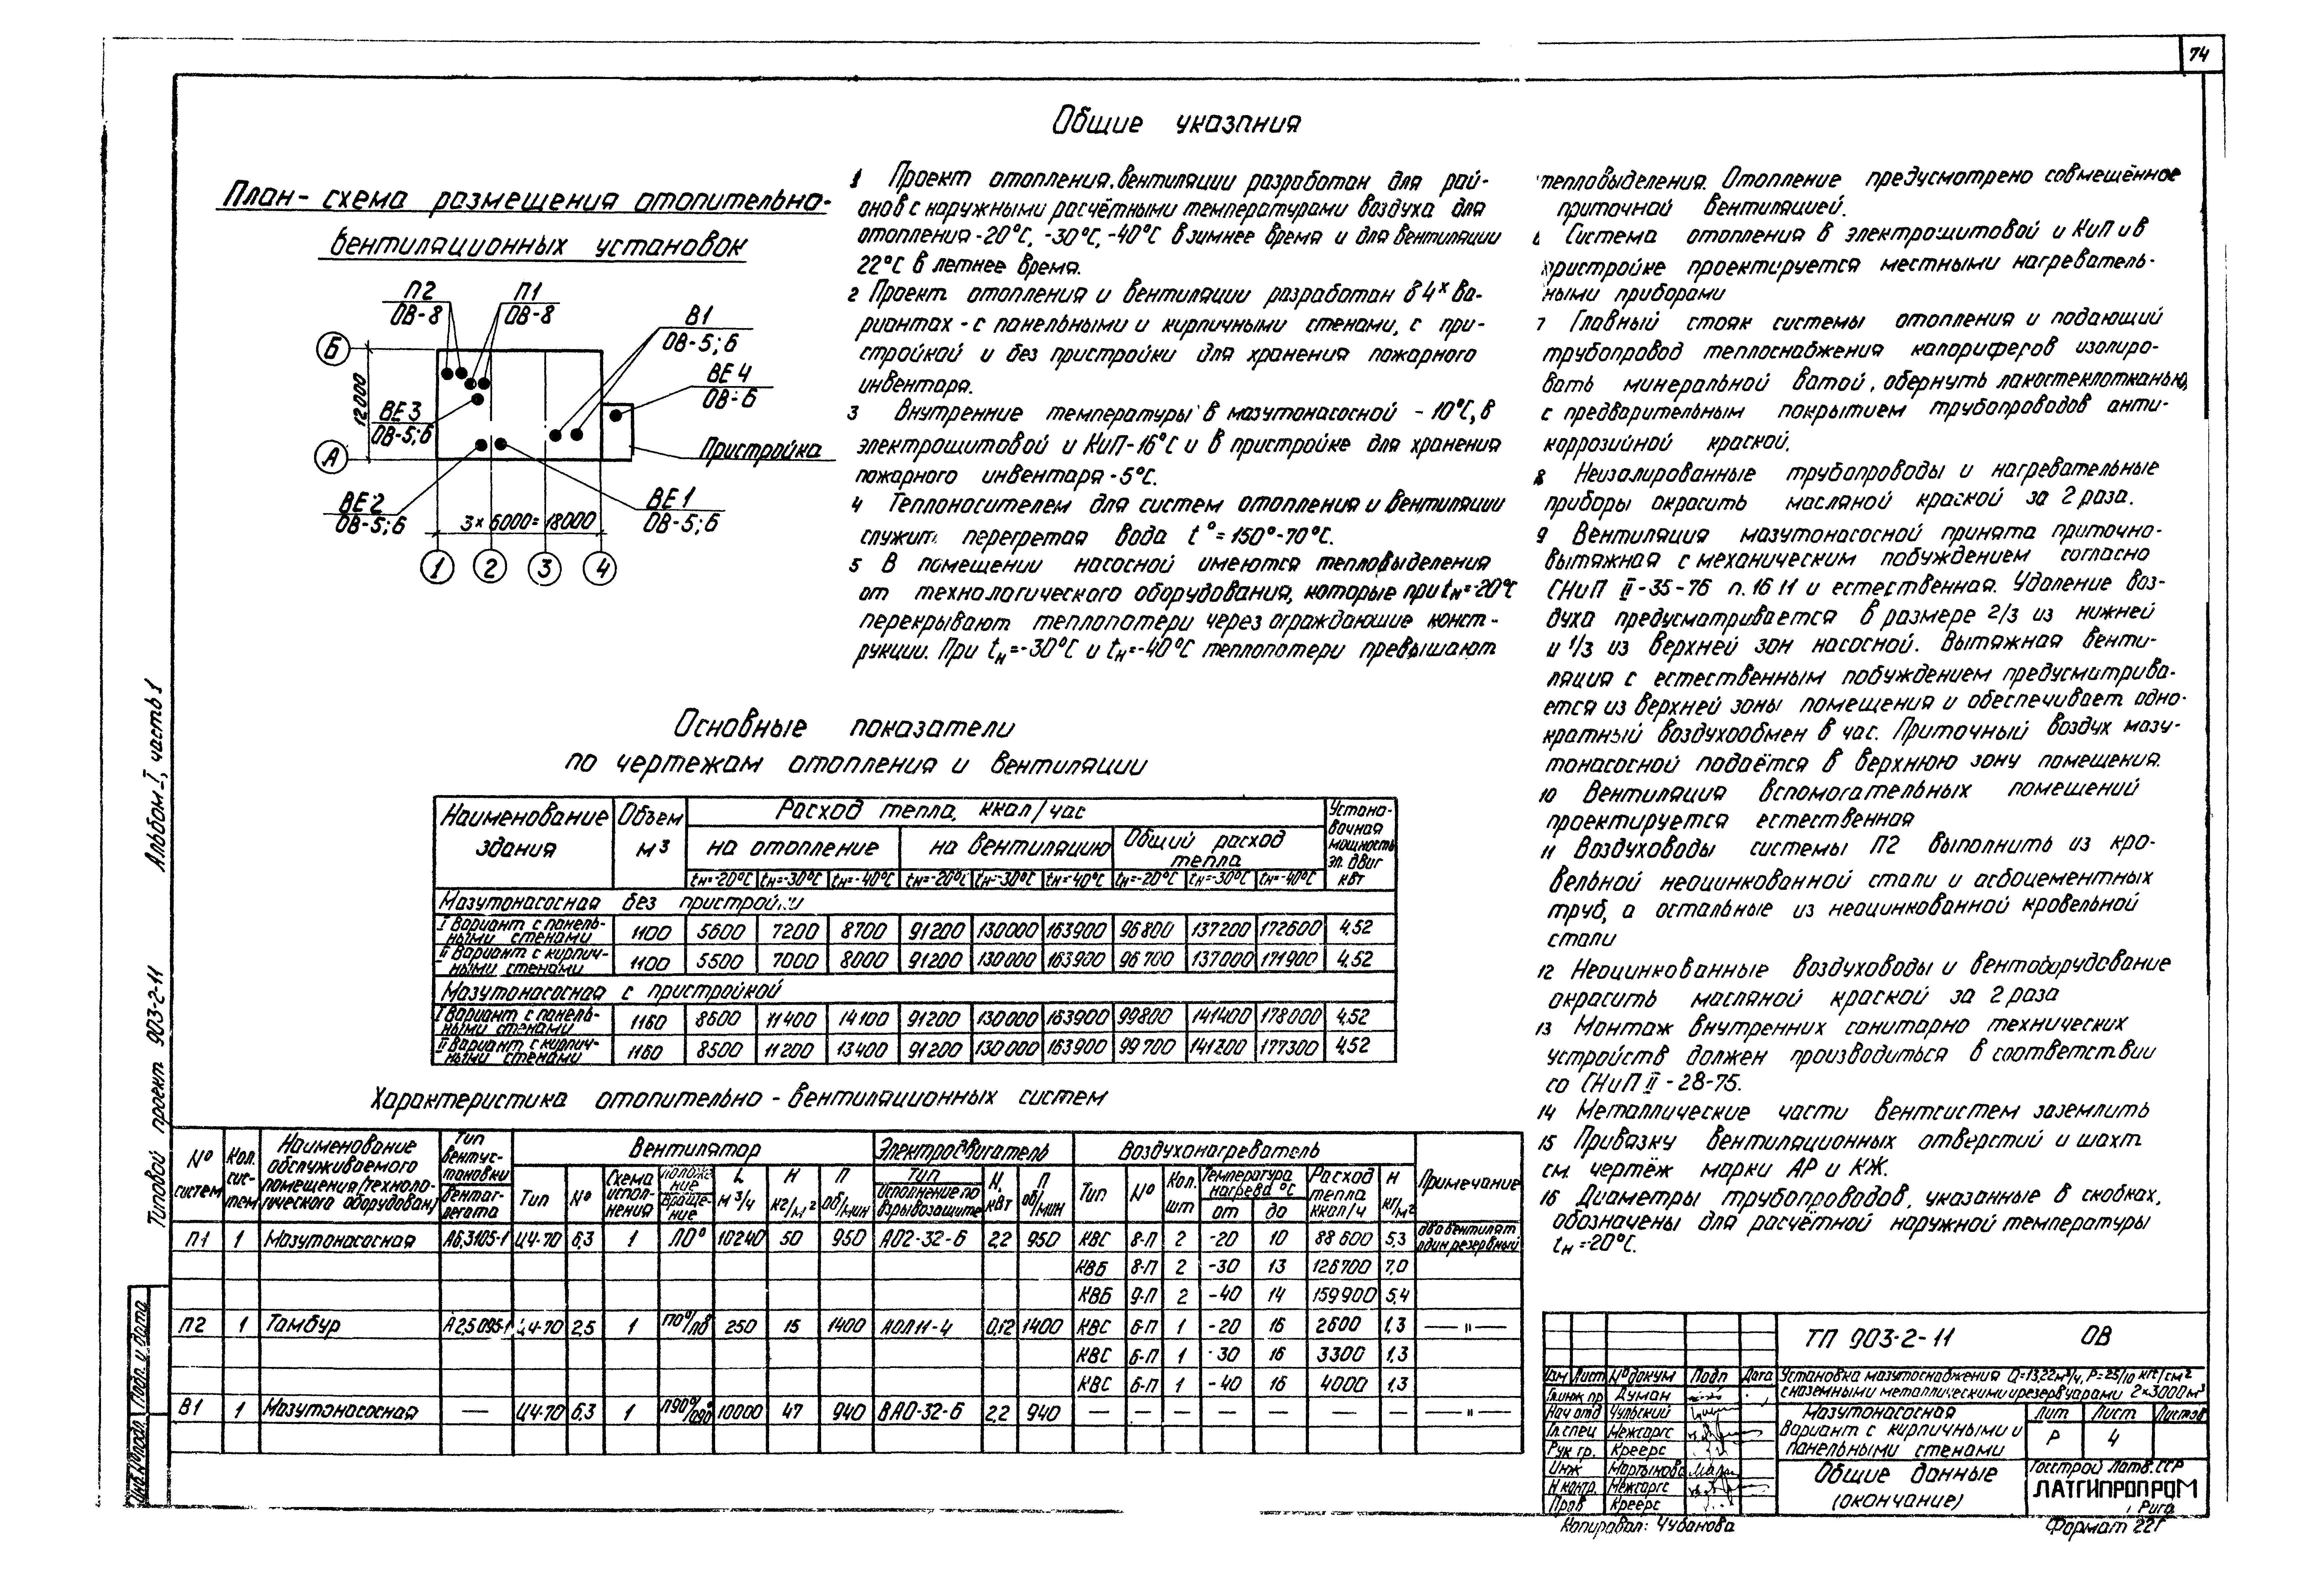 74
Общие указания
План-схема размещения отопительно-
вентиляционных установок
П2
ОВ-8
П1
ОВ-8
В1
ОВ-5;6
ВЕ4
ОВ-6
Б
12000
ВЕ3
ОВ-5;6
А
Пристройка
ВЕ2
ОВ-5;6
3×6000=18000
ВЕ1
ОВ-5;6
1 2 3 4
1 Проект отопления, вентиляции разработан для рай-
онов с наружными расчётными температурами воздуха для
отопления -20°С, -30°С, -40°С в зимнее время и для вентиляции
22°С в летнее время.
2 Проект отопления и вентиляции разработан в 4х ва-
риантах - с панельными и кирпичными стенами, с при-
стройкой и без пристройки для хранения пожарного
инвентаря.
3 Внутренние температуры в мазутонасосной - 10°С, в
электрощитовой и КиП-16°С и в пристройке для хранения
пожарного инвентаря - 5°С.
4 Теплоносителем для систем отопления и вентиляции
служит перегретая вода t°=150°-70°С.
5 В помещении насосной имеются тепловыделения
от технологического оборудования, которые при tн=-20°С
перекрывают теплопотери через ограждающие конст-
рукции. При tн=-30°С и tн=-40°С теплопотери превышают
тепловыделения. Отопление предусмотрено совмещённое
приточной вентиляцией.
6 Система отопления в электрощитовой и КиП и в
пристройке проектируется местными нагреватель-
ными приборами
7 Главный стояк системы отопления и подающий
трубопровод теплоснабжения калориферов изолиро-
вать минеральной ватой, обернуть лакостеклотканью,
с предварительным покрытием трубопроводов анти-
коррозийной краской.
8 Неизолированные трубопроводы и нагревательные
приборы окрасить масляной краской за 2 раза.
9 Вентиляция мазутонасосной принята приточно-
вытяжная с механическим побуждением согласно
СНиП II-35-76 п. 16 11 и естественная. Удаление воз-
духа предусматривается в размере 2/3 из нижней
и 1/3 из верхней зон насосной. Вытяжная венти-
ляция с естественным побуждением предусматрива-
ется из верхней зоны помещения и обеспечивает одно-
кратный воздухообмен в час. Приточный воздух мазу-
тонасосной подаётся в верхнюю зону помещения.
10 Вентиляция вспомогательных помещений
проектируется естественная
11 Воздуховоды системы П2 выполнить из кро-
вельной неоцинкованной стали и асбоцементных
труб, а остальные из неоцинкованной кровельной
стали
12 Неоцинкованные воздуховоды и вентоборудование
окрасить масляной краской за 2 раза
13 Монтаж внутренних санитарно технических
устройств должен производиться в соответствии
со СНиП II-28-75.
14 Металлические части вентсистем заземлить
15 Привязку вентиляционных отверстий и шахт
см. чертёж марки АР и КЖ.
16 Диаметры трубопроводов, указанные в скобках,
обозначены для расчётной наружной температуры
tн=-20°С.
Основные показатели
по чертежам отопления и вентиляции
Наименование здания Объем м³ Расход тепла, ккал/час Устано-вочная мощность эл. двиг квт
на отопление на вентиляцию Общий расход тепла
tн=-20°С tн=-30°С tн=-40°С tн=-20°С tн=-30°С tн=-40°С tн=-20°С tн=-30°С tн=-40°С
Мазутонасосная без пристройки
I Вариант с панель-ными стенами 1100 5600 7200 8700 91200 130000 163900 96800 137200 172600 4,52
II Вариант с кирпич-ными стенами 1100 5500 7000 8000 91200 130000 163900 96700 137000 171900 4,52
Мазутонасосная с пристройкой
I Вариант с панель-ными стенами 1160 8600 11400 14100 91200 130000 163900 99800 141400 178000 4,52
II Вариант с кирпич-ными стенами 1160 8500 11200 13400 91200 130000 163900 99700 141200 177300 4,52
Характеристика отопительно-вентиляционных систем
№ систем Кол. сис-тем Наименование обслуживаемого помещения/техноло-гического оборудован/ Тип вентус-тановки Вентаг-регата Вентилятор Электродвигатель Воздухонагреватель Примечание
Тип № Схема испол-нения положе-ние враще-ние L м³/ч Н кг/м² П об/мин Тип исполнение по взрывозащите N, квт П об/мин Тип № Кол. шт Температура нагрева °С от до Расход тепла ккал/ч Н кг/м²
П1 1 Мазутонасосная А6,3105-1 Ц4-70 6,3 1 Л0° 10240 50 950 АО2-32-6 2,2 950 КВС 8-П 2 -20 10 88600 5,3 два вентилят. один резервный
КВБ 8-П 2 -30 13 126700 7,0
КВБ 9-П 2 -40 14 159900 5,4
П2 1 Тамбур А2,5095-1 Ц4-70 2,5 1 П0°/Л0° 250 15 1400 АОЛ11-4 0,12 1400 КВС 6-П 1 -20 16 2600 1,3 —"—
КВС 6-П 1 -30 16 3300 1,3
КВС 6-П 1 -40 16 4000 1,3
В1 1 Мазутонасосная — Ц4-70 6,3 1 П90°/Л90° 10000 47 940 ВАО-32-6 2,2 940 — — — — — — — —"—
Альбом-I, часть 1
Типовой проект 903-2-11
Подп. и дата
Инв.№подл.
ТП 903-2-11 ОВ
Изм Лист №докум Подп Дата
Установка мазутоснабжения Q=13,22м³/ч, Р=25/10 кгс/см²
с наземными металлическими резервуарами 2×3000м³
Гл.инж.пр Думан
Нач отд Чульский
Гл.спец Межсаргс
Рук гр. Креерс
Инж Мартынова
Н контр. Межсаргс
Пров Креерс
Мазутонасосная
Вариант с кирпичными и
панельными стенами
Лит Лист Листов
Р 4
Общие данные
(окончание)
Госстрой Латв.ССР
ЛАТГИПРОПРОМ
г. Рига
Копировал: Чубанова
Формат 22Г